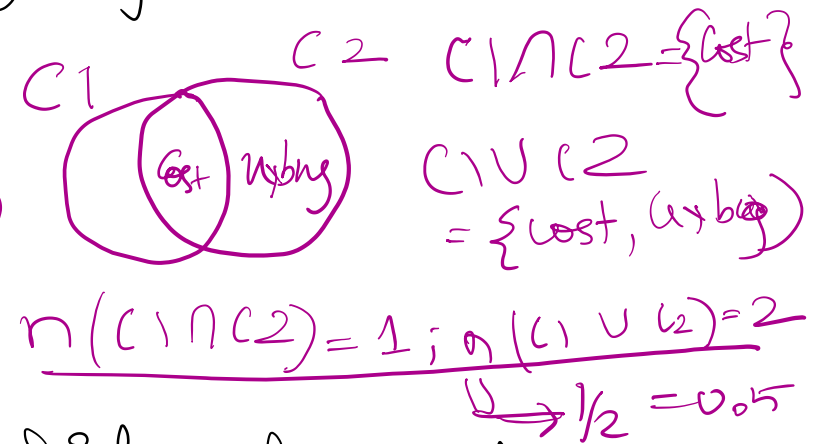 C1
C2
C1∩C2={Cost}
Cost
C1∪C2
= {cost,
n(C1∩C2)=1; n(C1∪C2)=2
→ 1/2 = 0.5